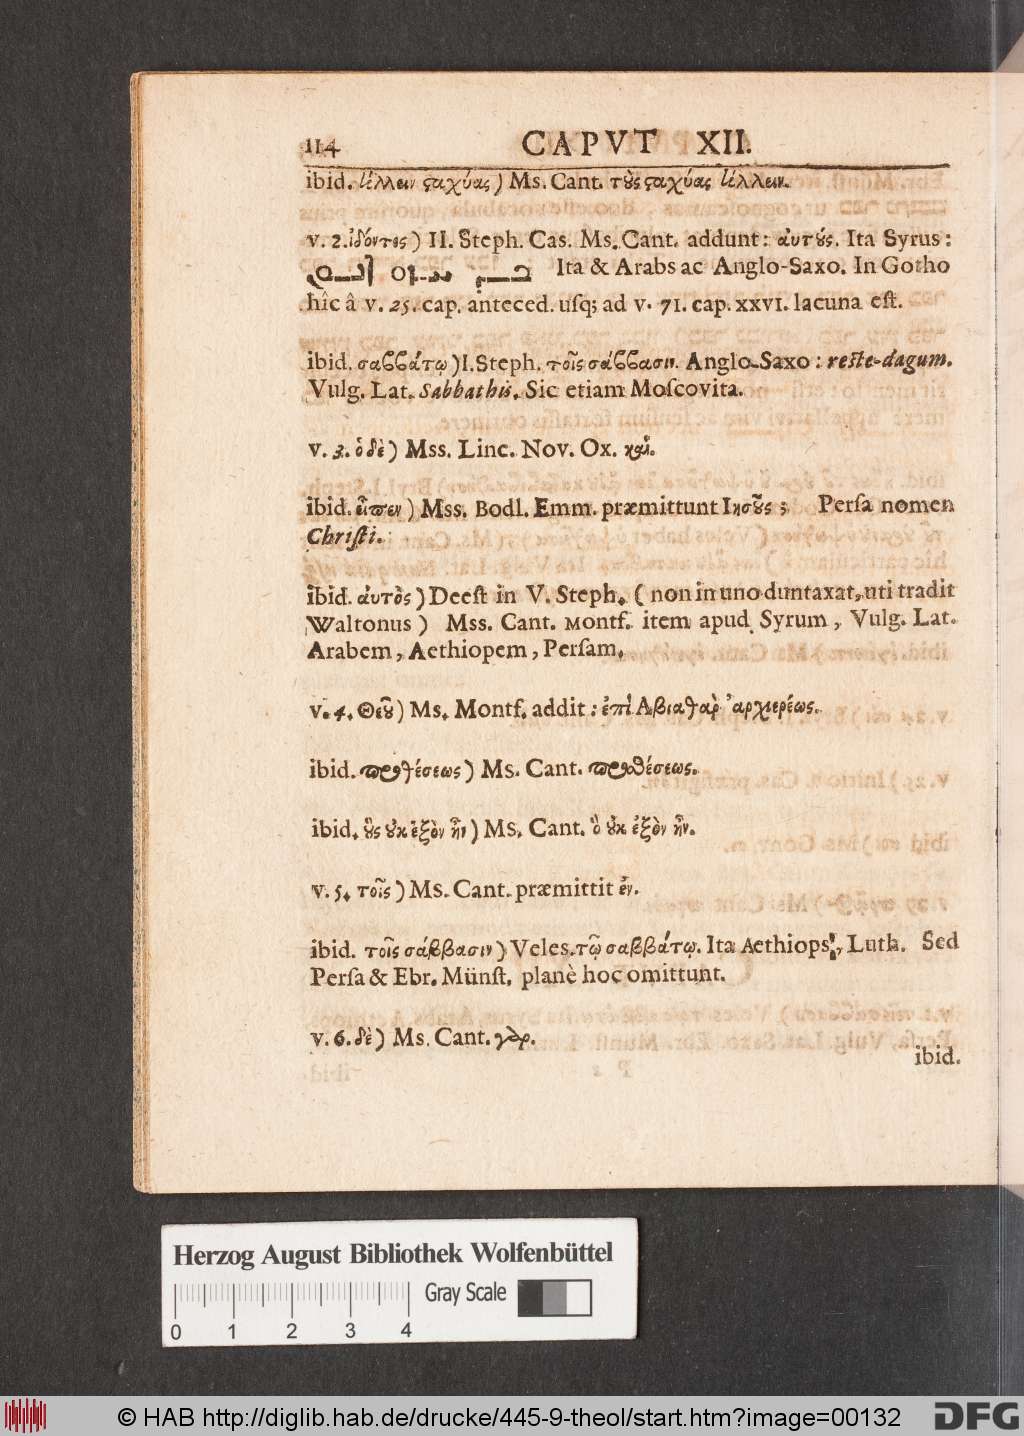 114 CAPVT XII.
ibid. τίλλειν ϛαχύας) Ms. Cant. τοὺς ϛαχύας τίλλειν.
v. 2. ἰδόντες) II. Steph. Cas. Ms. Cant. addunt: ἀυτούς. Ita Syrus:
Ita & Arabs ac Anglo-Saxo. In Gotho
hîc â v. 25. cap. anteced. uſq; ad v. 71. cap. xxvi. lacuna eſt.
ibid. σαββάτῳ) I. Steph. τοῖς σάββασιν. Anglo-Saxo: reſte-dagum.
Vulg. Lat. Sabbathis. Sic etiam Moſcovita.
v. 3. ὁ δὲ) Mss. Linc. Nov. Ox. καὶ.
ibid. εἶπεν) Mss. Bodl. Emm. præmittunt Ιησοῦς; Perſa nomen
Chriſti.
ibid. ἀυτοῖς) Deeſt in V. Steph. (non in uno duntaxat, uti tradit
Waltonus) Mss. Cant. Montf. item apud Syrum, Vulg. Lat.
Arabem, Aethiopem, Perſam.
v. 4. Θεοῦ) Ms. Montf. addit: ἐπὶ Αβιαθὰρ ἀρχιερέως.
ibid. προθέσεως) Ms. Cant. προσθέσεως.
ibid. οὓς οὐκ ἐξὸν ἦν) Ms. Cant. ὃ οὐκ ἐξὸν ἦν.
v. 5. τοῖς) Ms. Cant. præmittit ἐν.
ibid. τοῖς σάββασιν) Veles. τῷ σαββάτῳ. Ita Aethiops, Luth. Sed
Perſa & Ebr. Münſt. planè hoc omittunt.
v. 6. δὲ) Ms. Cant. γὰρ.
ibid.
Herzog August Bibliothek Wolfenbüttel
Gray Scale
0 1 2 3 4
© HAB http://diglib.hab.de/drucke/445-9-theol/start.htm?image=00132 DFG